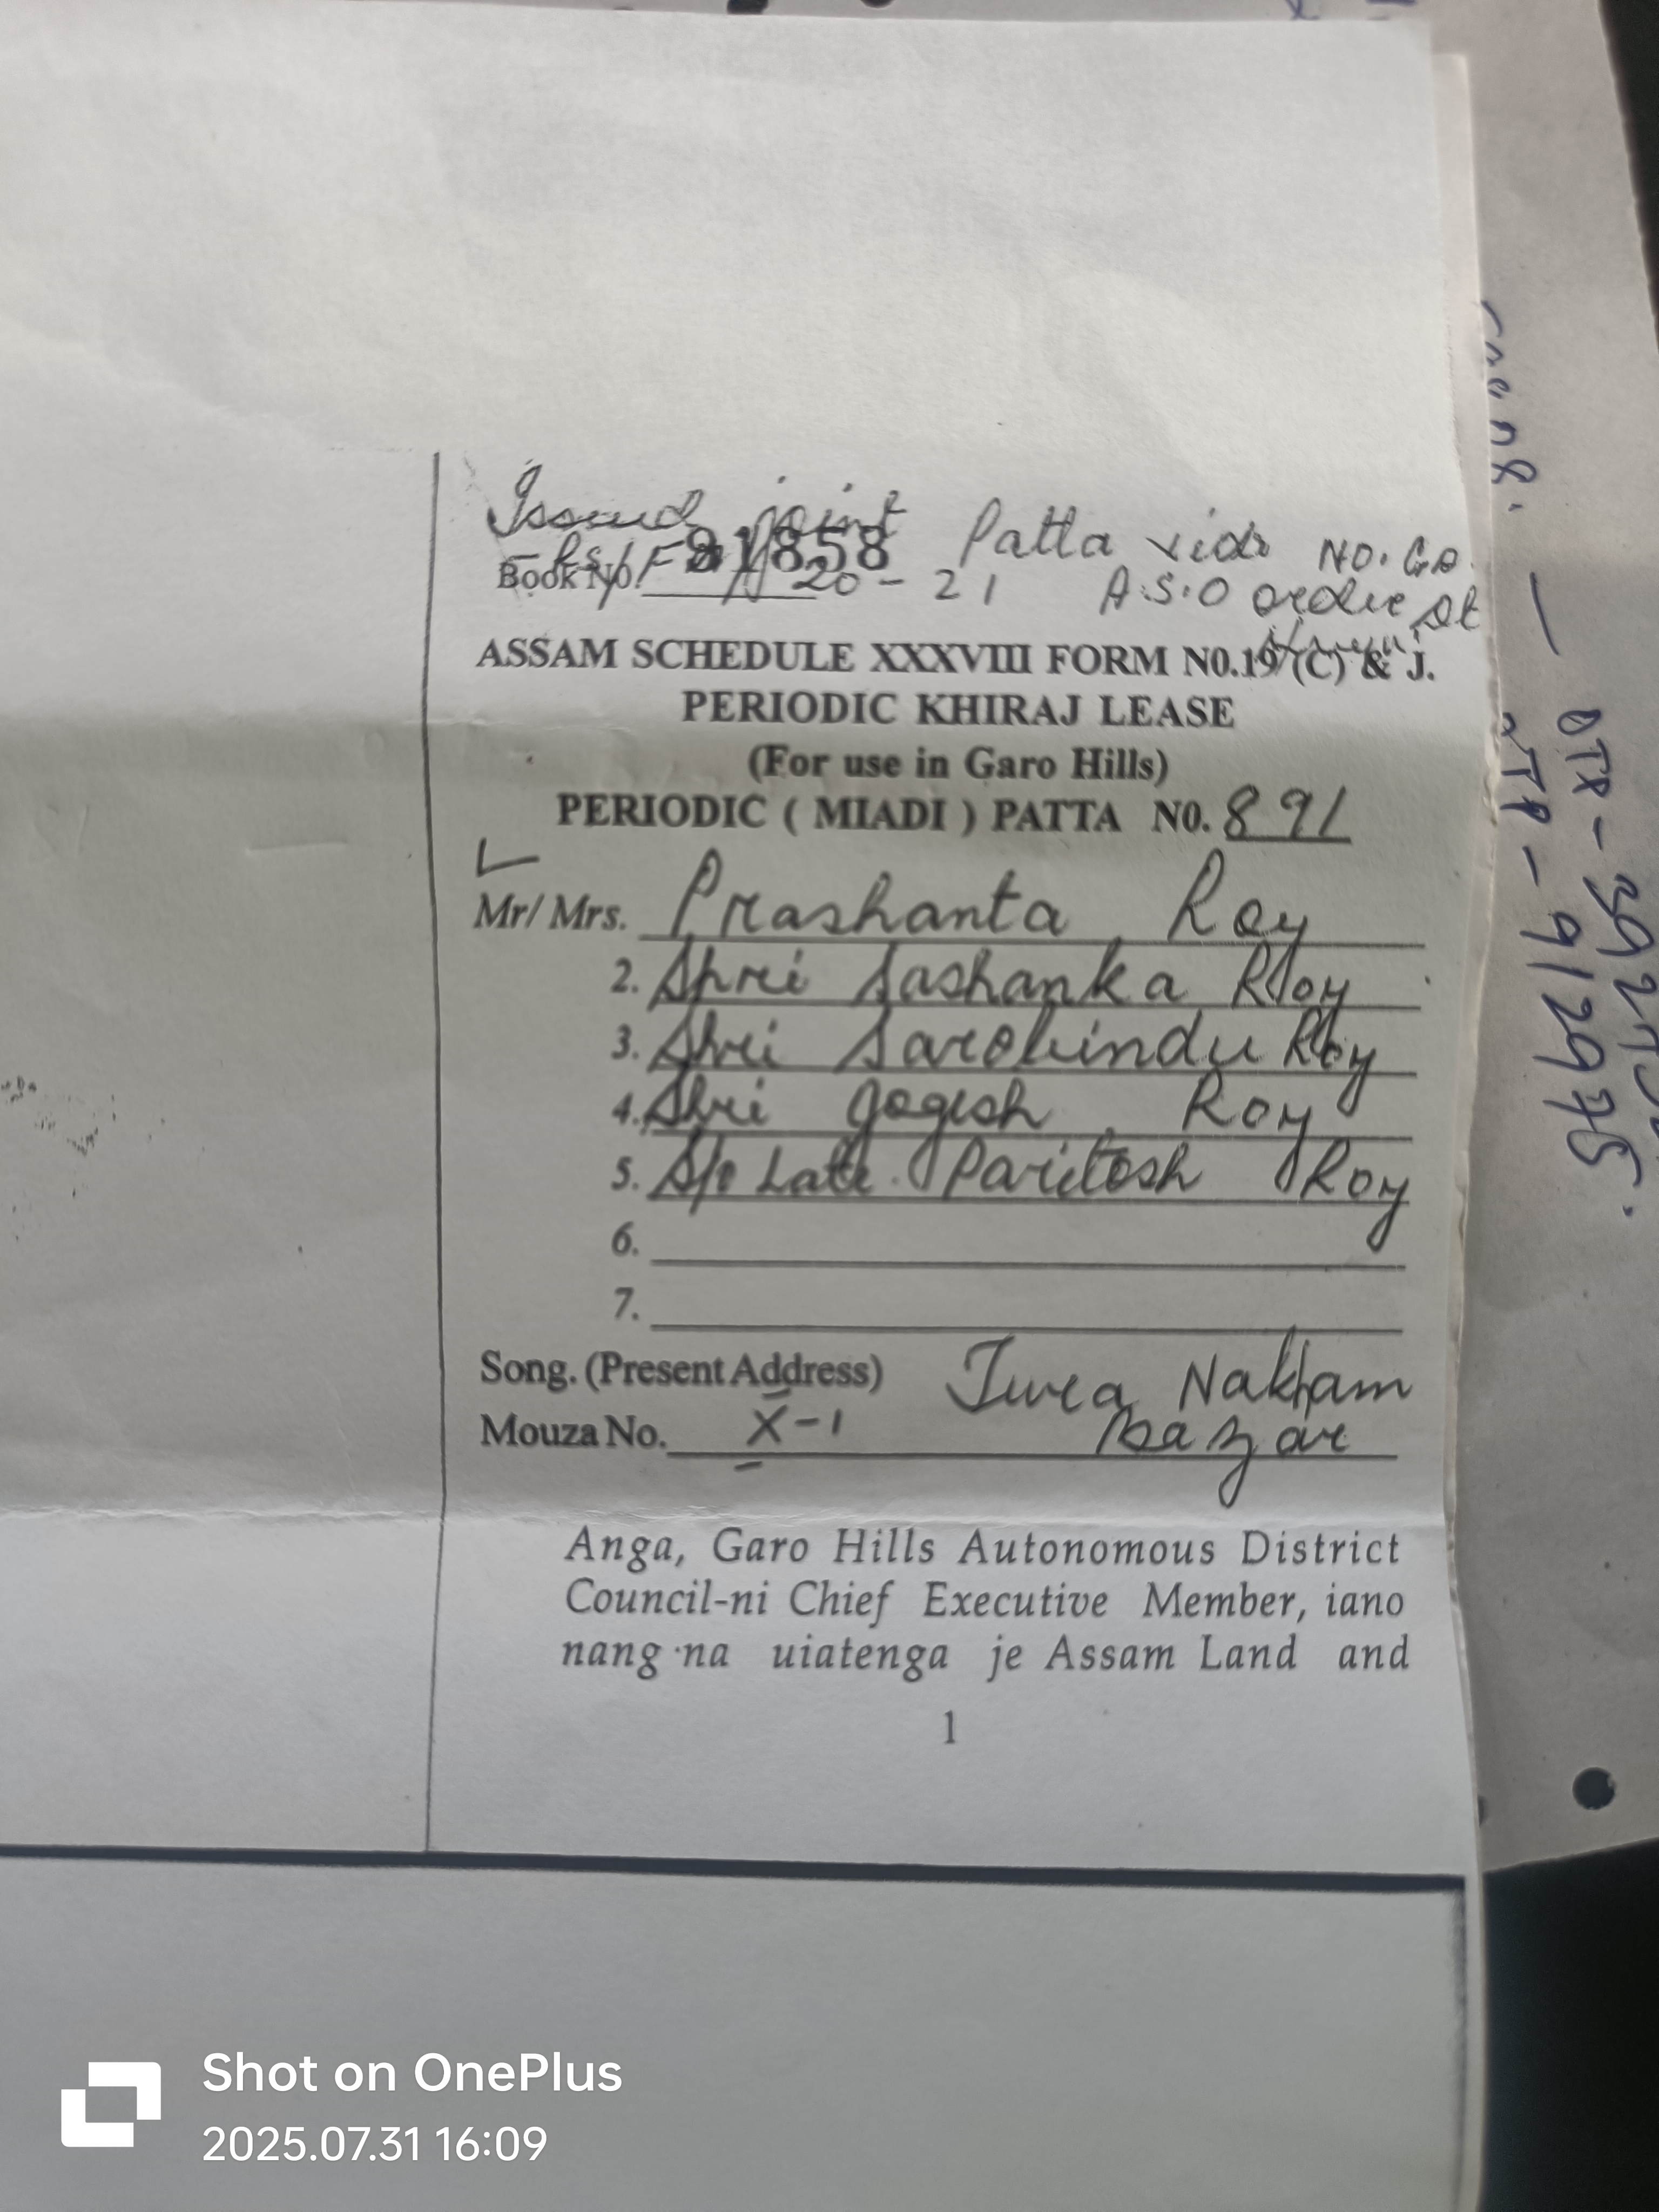 Issued joint Patta vide No. Go.
81858
Book No. 20 - 21 A.S.O order dt
ASSAM SCHEDULE XXXVIII FORM N0.19 (C) & J.
PERIODIC KHIRAJ LEASE
(For use in Garo Hills)
PERIODIC ( MIADI ) PATTA N0. 891
Mr/ Mrs. Prashanta Roy
2. Shri Sashanka Roy
3. Shri Sarobindu Roy
4. Shri Jogesh Roy
5. S/o Late. Paritosh Roy
6.
7.
Song. (Present Address) Tura Nakham
Mouza No. X-1 Bazar
Anga, Garo Hills Autonomous District
Council-ni Chief Executive Member, iano
nang·na uiatenga je Assam Land and
1
Shot on OnePlus
2025.07.31 16:09